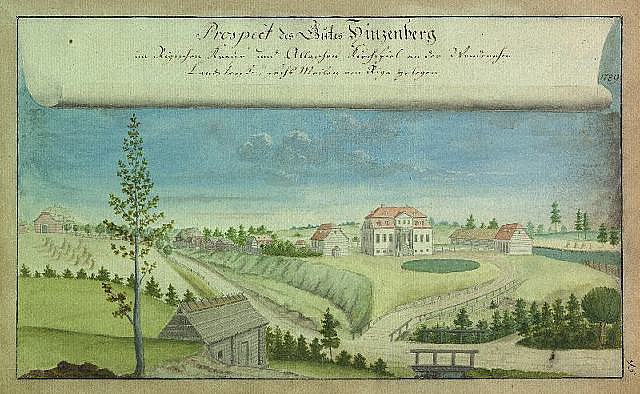 Prospect des Gutes Hinzenberg
im Rigischen Kreise und Allaschen Kirchspiel an der Wendenschen
Landstraße sechs Meilen von Riga gelegen